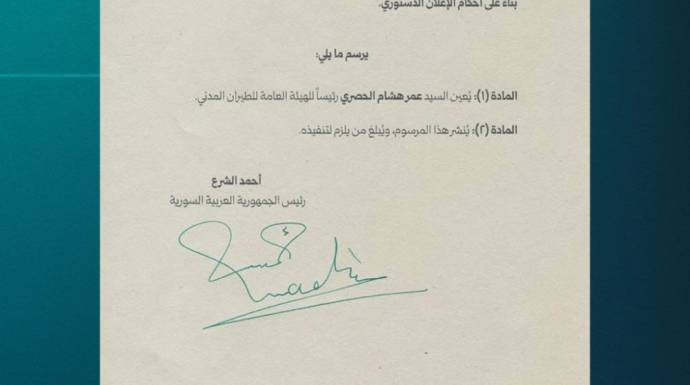 بناءً على أحكام الإعلان الدستوري.
يرسم ما يلي:
المادة (١): يُعين السيد عمر هشام الحصري رئيساً للهيئة العامة للطيران المدني.
المادة (٢): يُنشر هذا المرسوم، ويُبلغ من يلزم لتنفيذه.
أحمد الشرع
رئيس الجمهورية العربية السورية